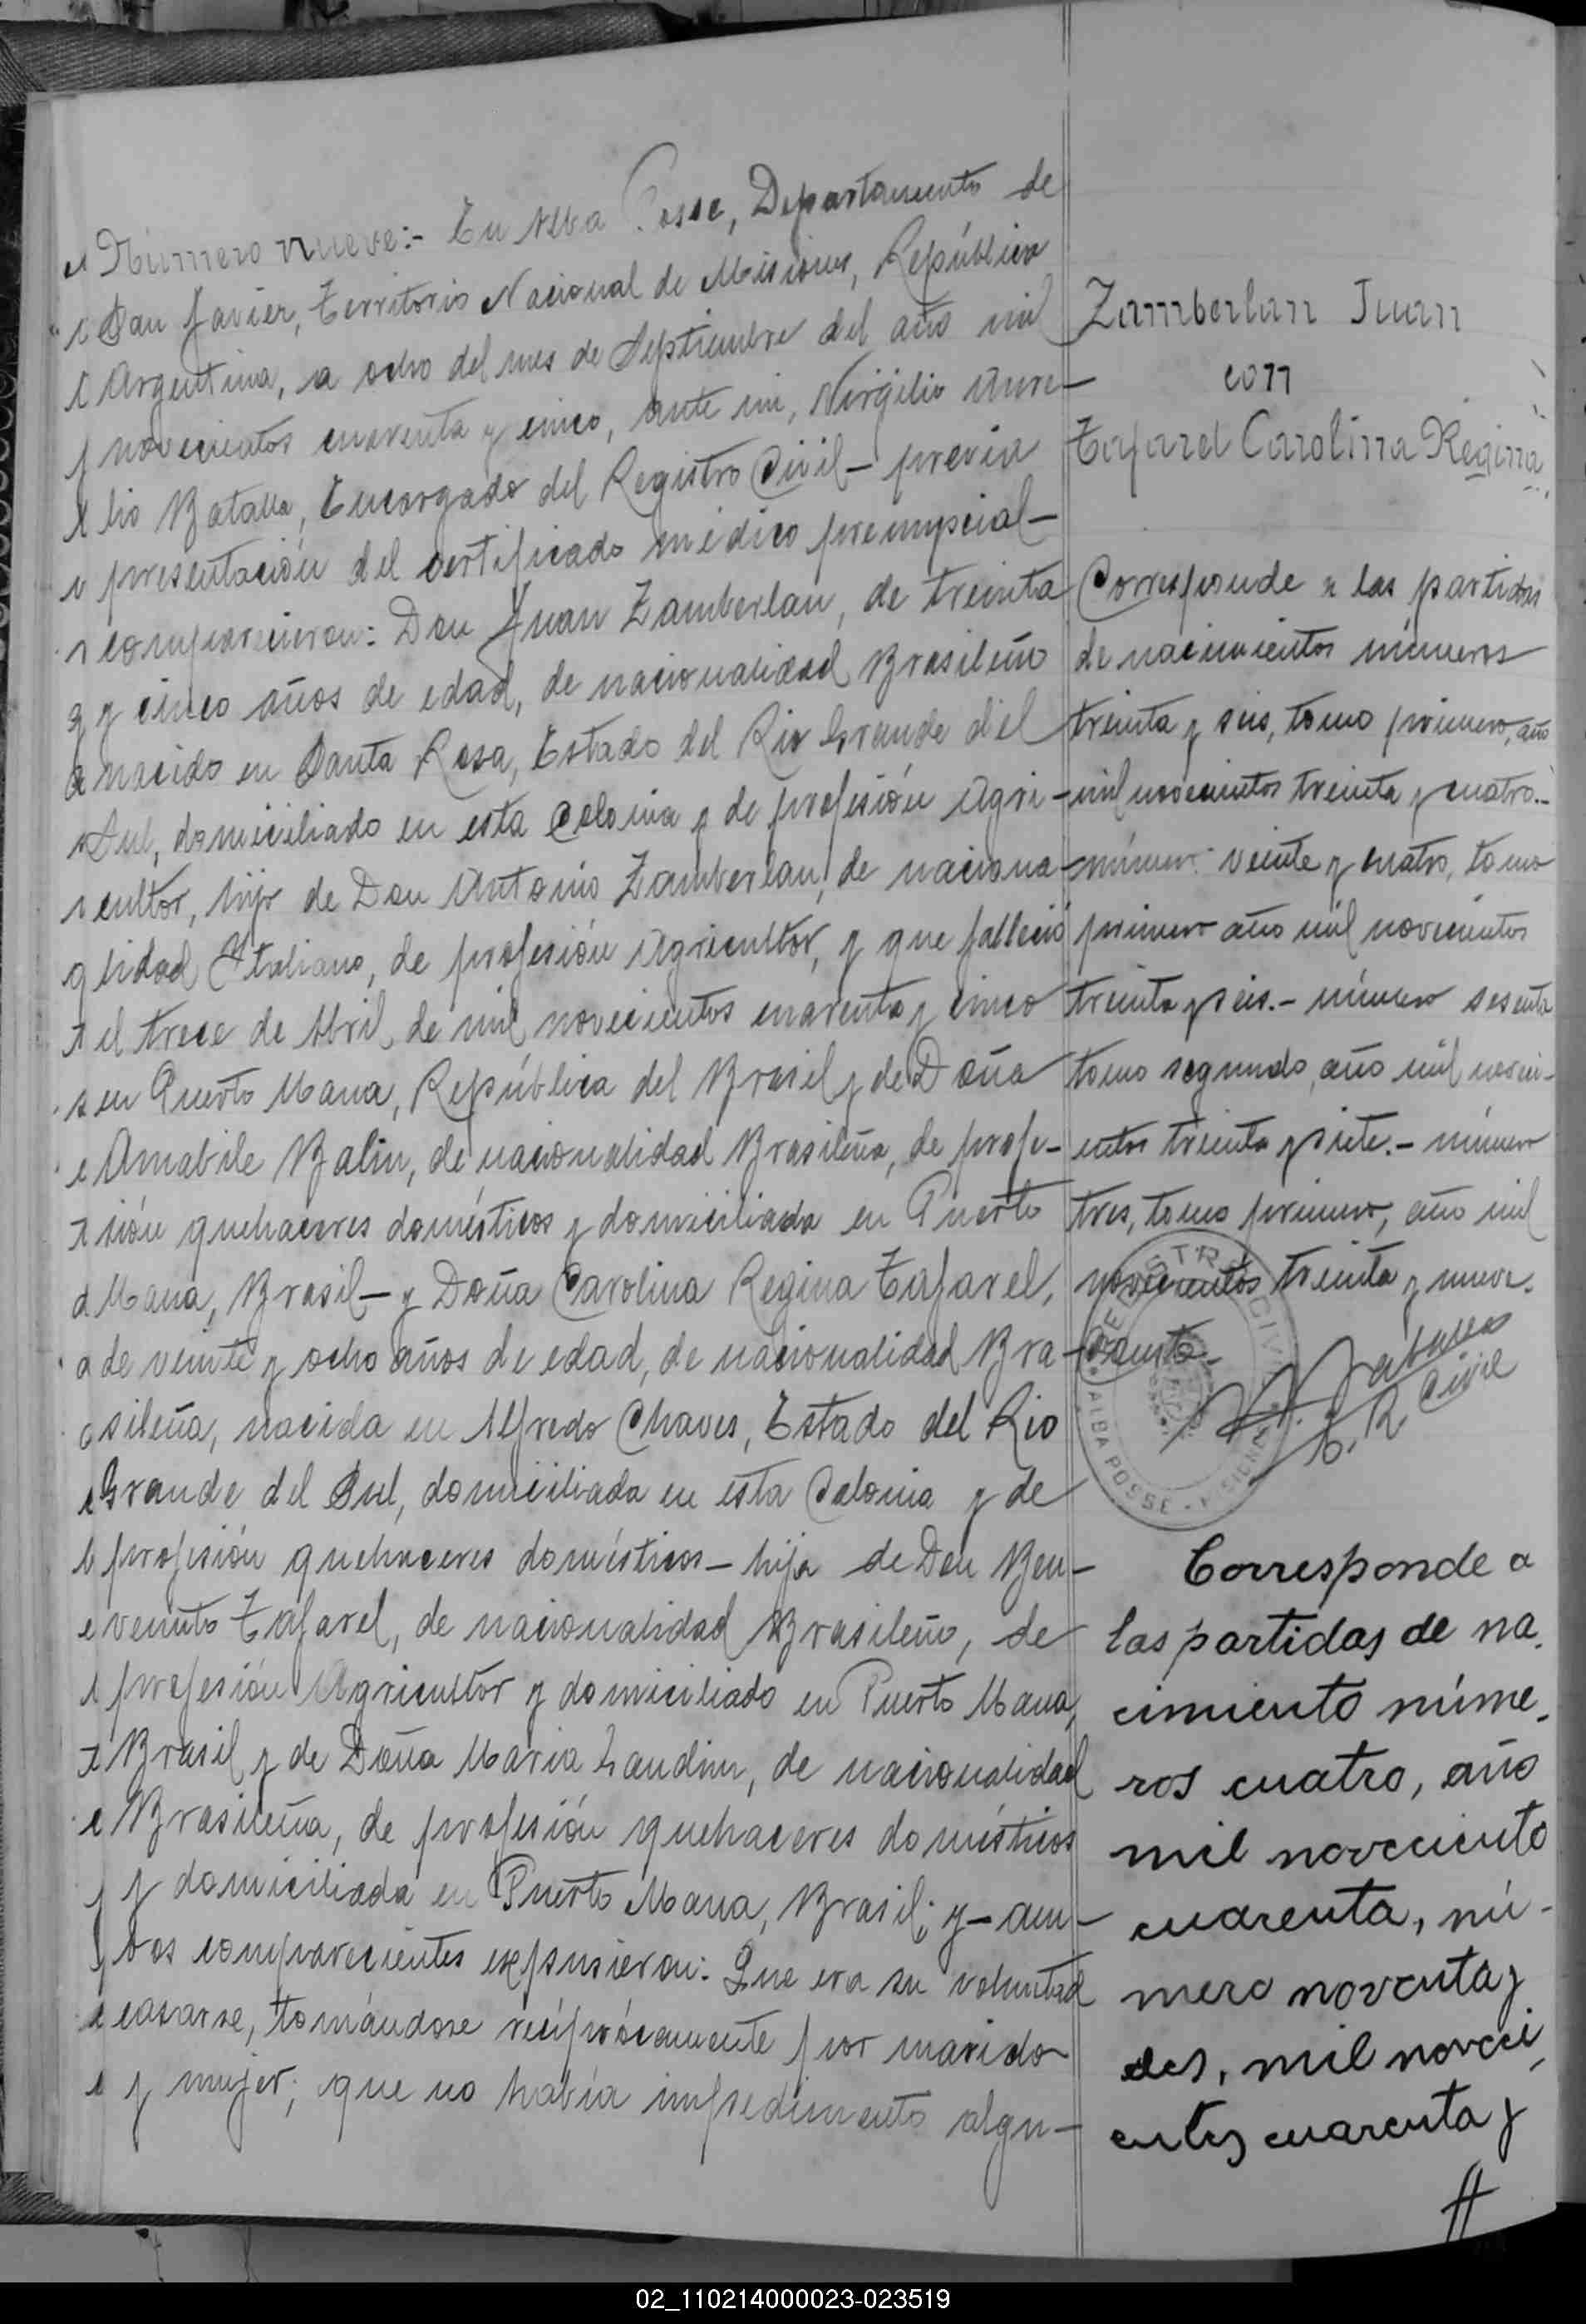 Número nueve:- En Alba Posse, Departamento de
San Javier, Territorio Nacional de Misiones, República
Argentina, a ocho del mes de Septiembre del año mil
novecientos cuarenta y cinco, ante mi, Virgilio Aure-
lio Batalla, Encargado del Registro Civil- previa
presentación del certificado médico prenupcial-
comparecieron: Don Juan Zamberlan, de treinta
y cinco años de edad, de nacionalidad Brasileño
nacido en Santa Rosa, Estado del Rio Grande del
Sul, domiciliado en esta Colonia y de profesión Agri-
cultor, hijo de Don Antonio Zamberlan, de naciona-
lidad Italiano, de profesión Agricultor, y que falleció
el trece de Abril de mil novecientos cuarenta y cinco
en Puerto Maua, República del Brasil y de Doña
Amabile Balin, de nacionalidad Brasileña, de profe-
sión quehaceres domésticos y domiciliada en Puerto
Maua, Brasil- y Doña Carolina Regina Tafarel,
de veinte y ocho años de edad, de nacionalidad Bra-
sileña, nacida en Alfredo Chaves, Estado del Rio
Grande del Sul, domiciliada en esta Colonia y de
profesión quehaceres domésticos- hija de Don Ben-
venuto Tafarel, de nacionalidad Brasileño, de
profesión Agricultor y domiciliado en Puerto Maua,
Brasil y de Doña Maria Landim, de nacionalidad
Brasileña, de profesión quehaceres domésticos
y domiciliada en Puerto Maua, Brasil; y- am-
bos comparecientes expusieron: Que era su voluntad
casarse, tomándose recíprócamente por marido
y mujer; que no había impedimento algu-
Zamberlan Juan
con
Tafarel Carolina Regina
Corresponde a las partidas
de nacimientos números
treinta y seis, tomo primero, año
mil novecientos treinta y cuatro.-
número veinte y cuatro, tomo
primero año mil novecientos
treinta y seis.- número sesenta
tomo segundo, año mil noveci-
entos treinta y siete.- número
tres, tomo primero, año mil
novecientos treinta y nueve.
Consta.-
V. A. Batalla
E. R. Civil
REGISTRO CIVIL
ALBA POSSE - MISIONES
Corresponde a
las partidas de na-
cimiento núme-
ros cuatro, año
mil novecciento
cuarenta, nú-
mero noventa y
dos, mil noveci
entos cuarenta y
//
02_110214000023-023519